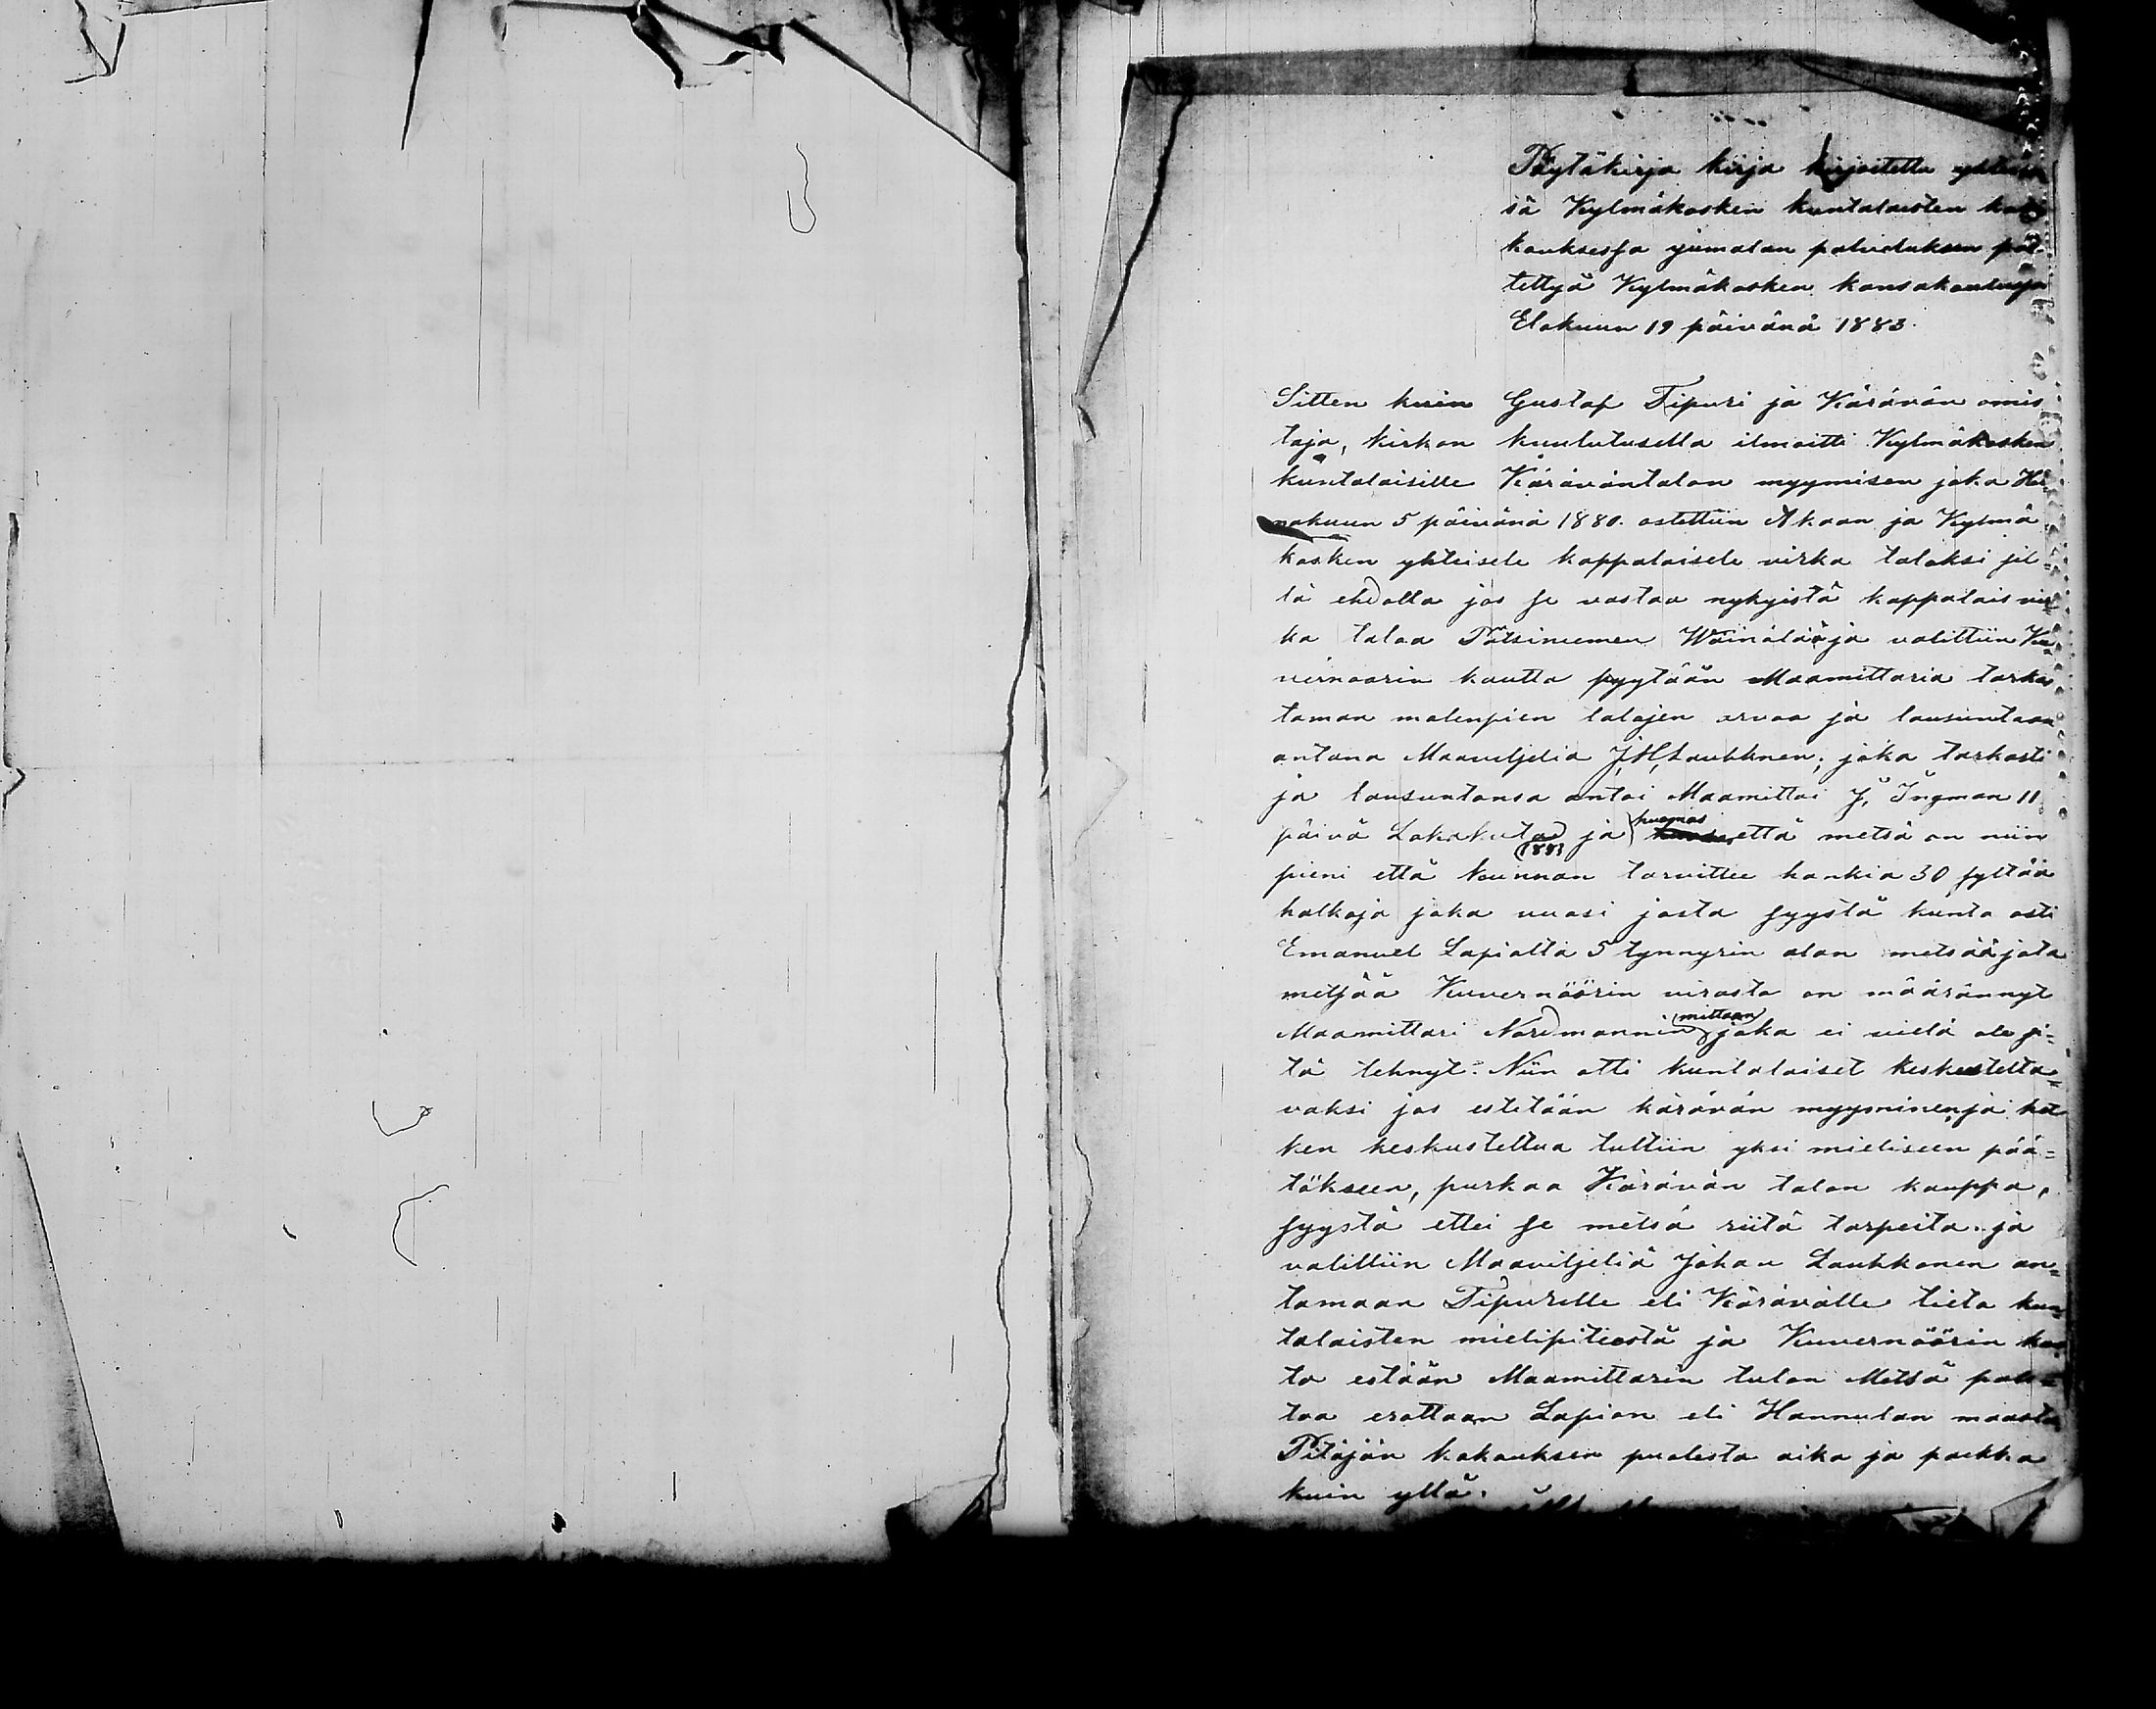 Pöytäkirja kirja kirjoitettu yhteise
sä Kylmäkosken kuntalaisten ko
kouksessa jumalan palveluksen pää
tettyä Kylmäkosken kansakoulussa
Elokuun 19 päivänä 1883.
Sitten kuin Gustaf Tipuri ja Kärävän omis
taja, kirkon kuulutuxella ilmoitti Kylmäkosken
kuntalaisille Käräväntalon myymisen joka Hei
näkuun 5 päivänä 1880. ostettiin Akaan ja Kylmä
kosken yhteisele kappalaisele virka taloksi sil=
lä ehdolla jos se vastaa nykyistä kappalais vir
ka taloa Pätsiniemen Wäinälää ja valittiin Ku
vernöörin kautta pyytään Maamittaria tarkas
taman molenpien talojen arvoa ja lausuntaan
antana Maaviljeliä J,H,Laukknen, joka tarkasti
ja lausuntansa antoi Maamittai J, Ingman 11
päivä Lokakuta 1881 ja huomas että metsä on niin
pieni että kunnan tarvittee hankia 30 syltää
halkoja joka vuosi josta syystä kunta osti
Emanuel Lapialta 5 tynnyrin alan metsää jota
metsää Kuvernöörin virasto on määrännyt
Maamittari Nordmannin mittaan joka ei vielä ole si=
tä tehnyt. Niin otti kuntalaiset keskustelta=
vaksi jos estetään kärävän myyminen, ja het
ken keskusteltua tultiin yksi mieliseen pää=
tökseen, purkaa Kärävän talon kauppa,
syystä ettei se metsä riitä tarpeita. ja
valittiin Maaviljeliä Johan Laukkonen an=
tamaan Tipurille eli Kärävälle tieto kun=
talaisten mielipiteestä ja Kuvernöörin kau
ta estään Maamittarin tulon Metsä pals
taa erottaan Lapion eli Hannulan maasta
Pitäjän kokouksen puolesta aika ja paikka
kuin yllä.